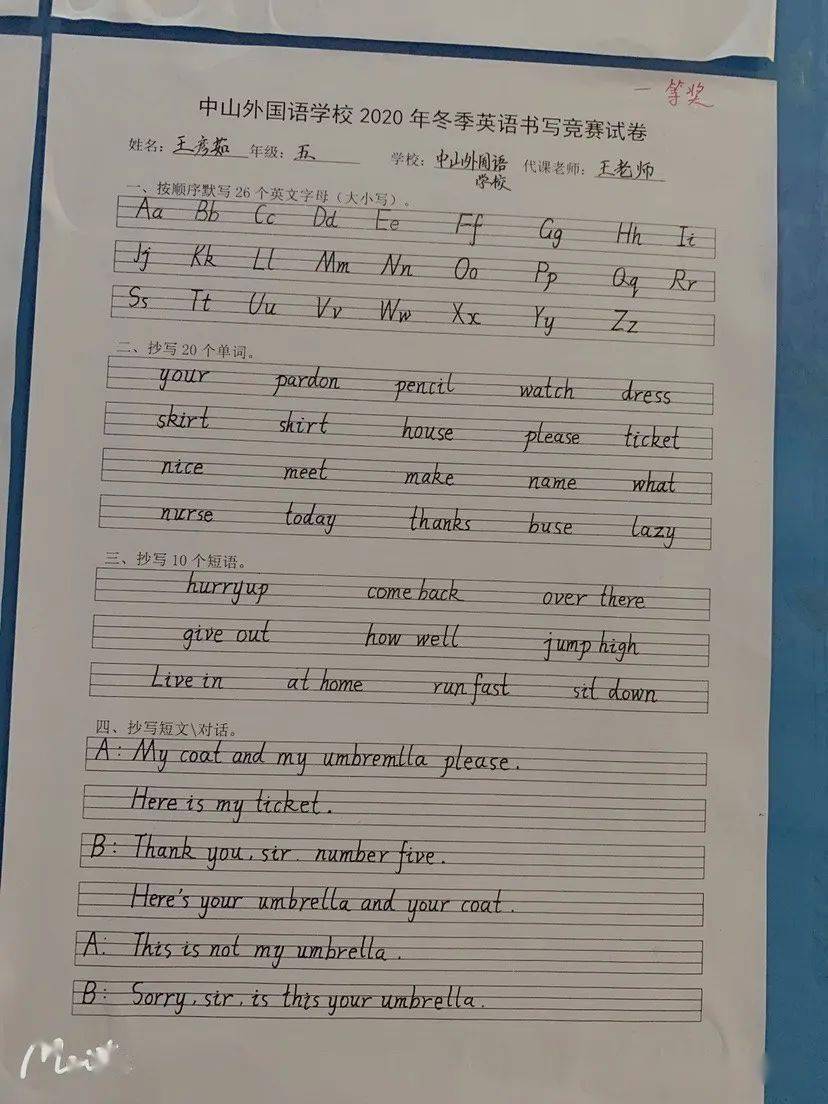 一等奖
中山外国语学校 2020 年冬季英语书写竞赛试卷
姓名：王彦茹 年级：五 学校：中山外国语学校 代课老师：王老师
一、按顺序默写 26 个英文字母（大小写）。
Aa Bb Cc Dd Ee Ff Gg Hh Ii
Jj Kk Ll Mm Nn Oo Pp Qq Rr
Ss Tt Uu Vv Ww Xx Yy Zz
二、抄写 20 个单词。
your pardon pencil watch dress
skirt shirt house please ticket
nice meet make name what
nurse today thanks buse lazy
三、抄写 10 个短语。
hurryup come back over there
give out how well jump high
Live in at home run fast sit down
四、抄写短文\对话。
A: My coat and my umbremlla please.
Here is my ticket.
B: Thank you, sir. number five.
Here's your umbrella and your coat.
A: This is not my umbrella.
B: Sorry, sir, is this your umbrella.